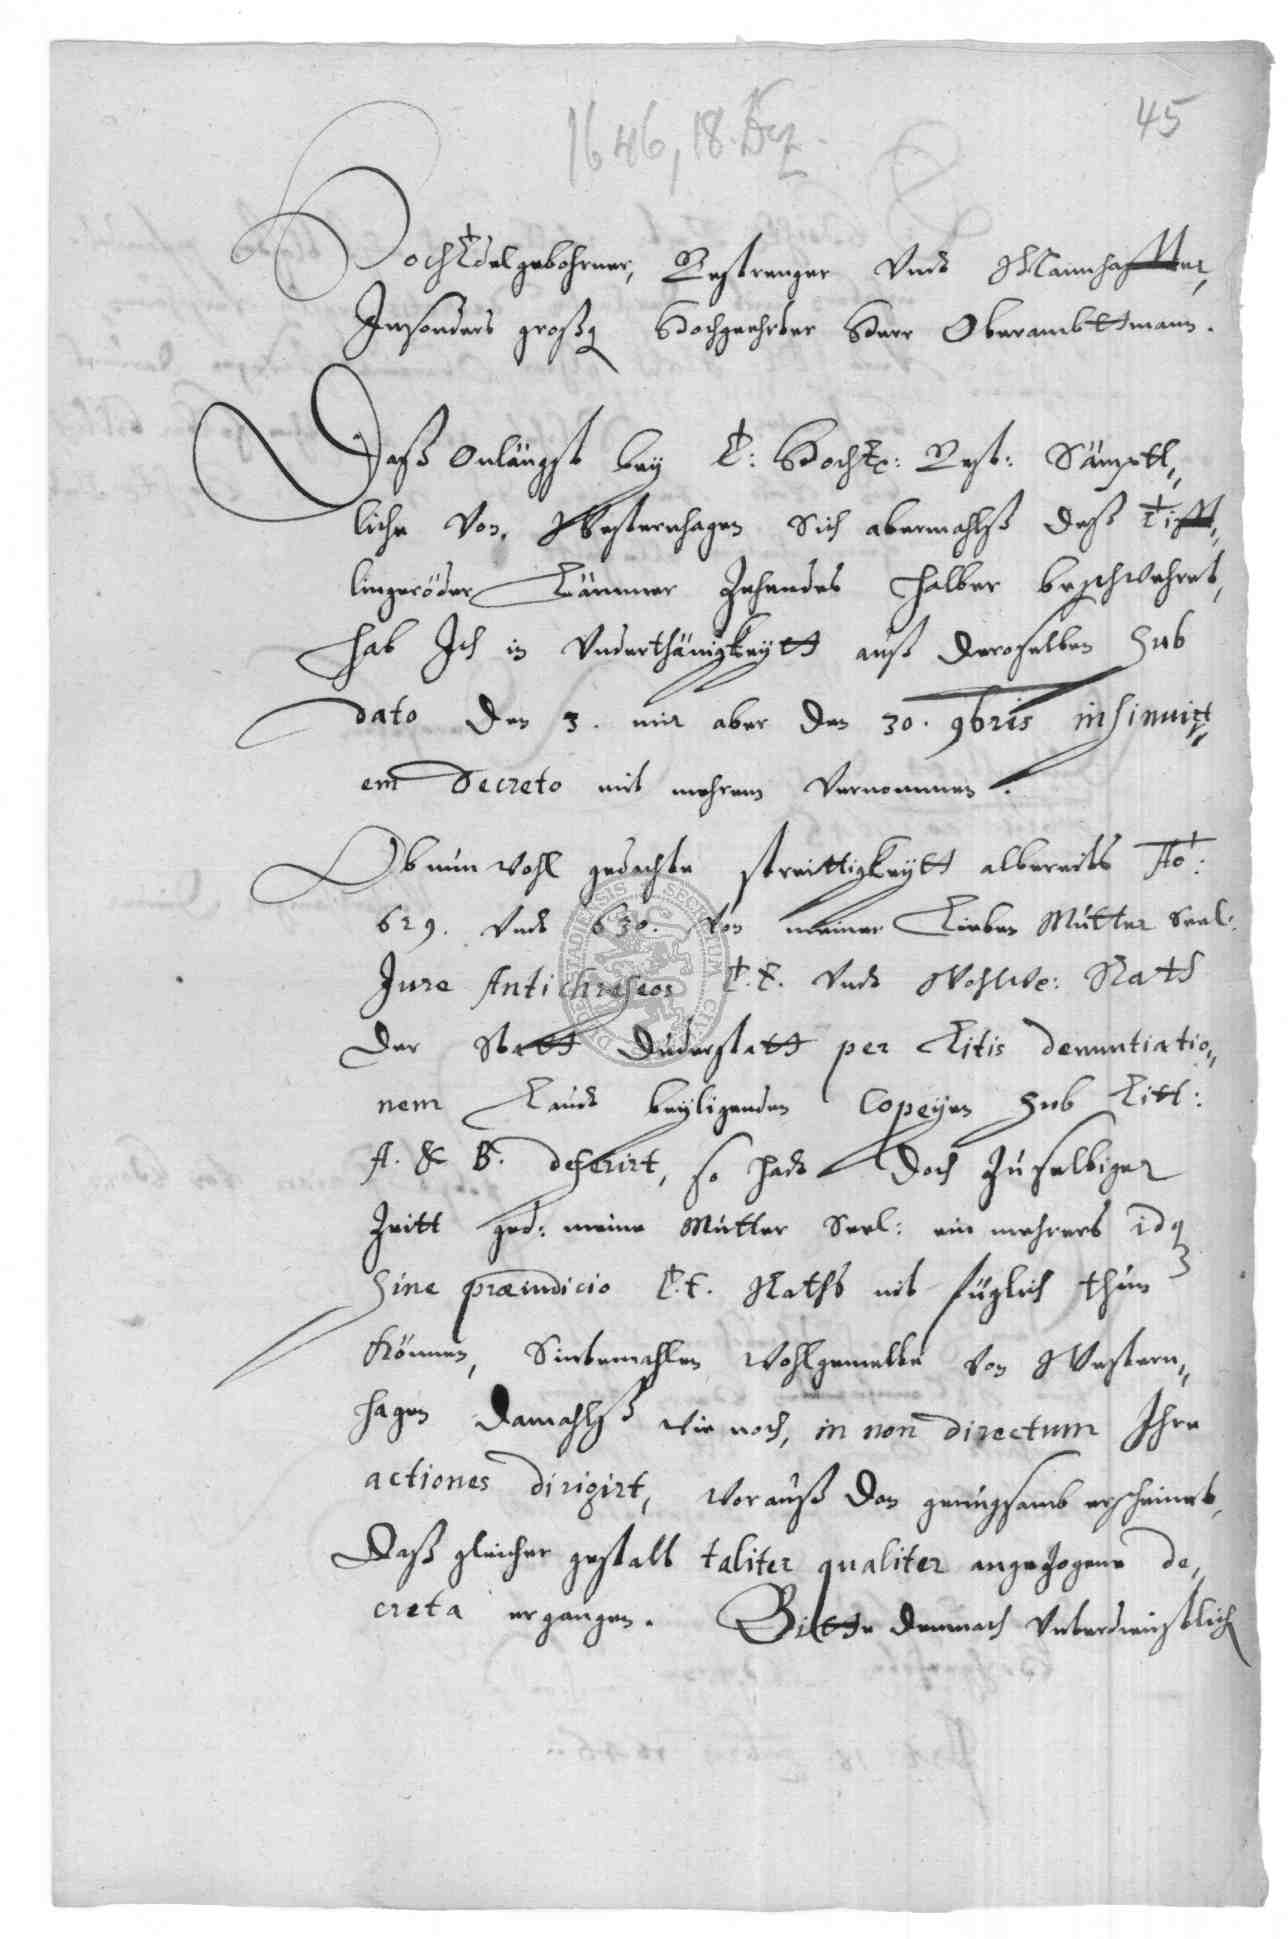 45
1646, 18. Dez.
HochEdelgebohrner, Gestrenger Vndt Mannhaffter,
Insonders großg. Hochgeehrter Herr Oberambttmann.
Daß Onlängst bey E: HochE: Gest: Sämptl,,
liche Von Westernhagen Sich abermahlß deß Tifft,,
lingeröder Lämmer Zehendes halber beschwehret,
hab Ich in Vnderthänigkeytt auß deroselben sub
dato den 3. mir aber den 30. 9bris insinuirt,,
em Decreto mit mehrem Vernommen.
Ob nun wohl gedachte streittigkeytt albereits Ao:
629. Vndt 630. Von meiner Lieben Mutter Seel:
Jure Antichreseos E.E. Vndt Wohlwe: Rath
der Statt Duderstatt per Litis denuntiatio,,
nem Laudt beyligenden Copeyen sub Litt:
A. & B. deferirt, so hadt doch zu selbiger
Zeitt ged: meine Mutter Seel: ein mehrers idq
sine præiudicio E.E. Raths nit füglich thun
können, Sintemahlen Wohlgemelte Von Western,,
hagen damahlß wie noch, in non directum Ihre
actiones dirigirt, worauß dan genugsamb erscheinet,
daß gleicher gestalt taliter qualiter angezogene de,
creta ergangen. Bitte demnach Vnterdienstlich